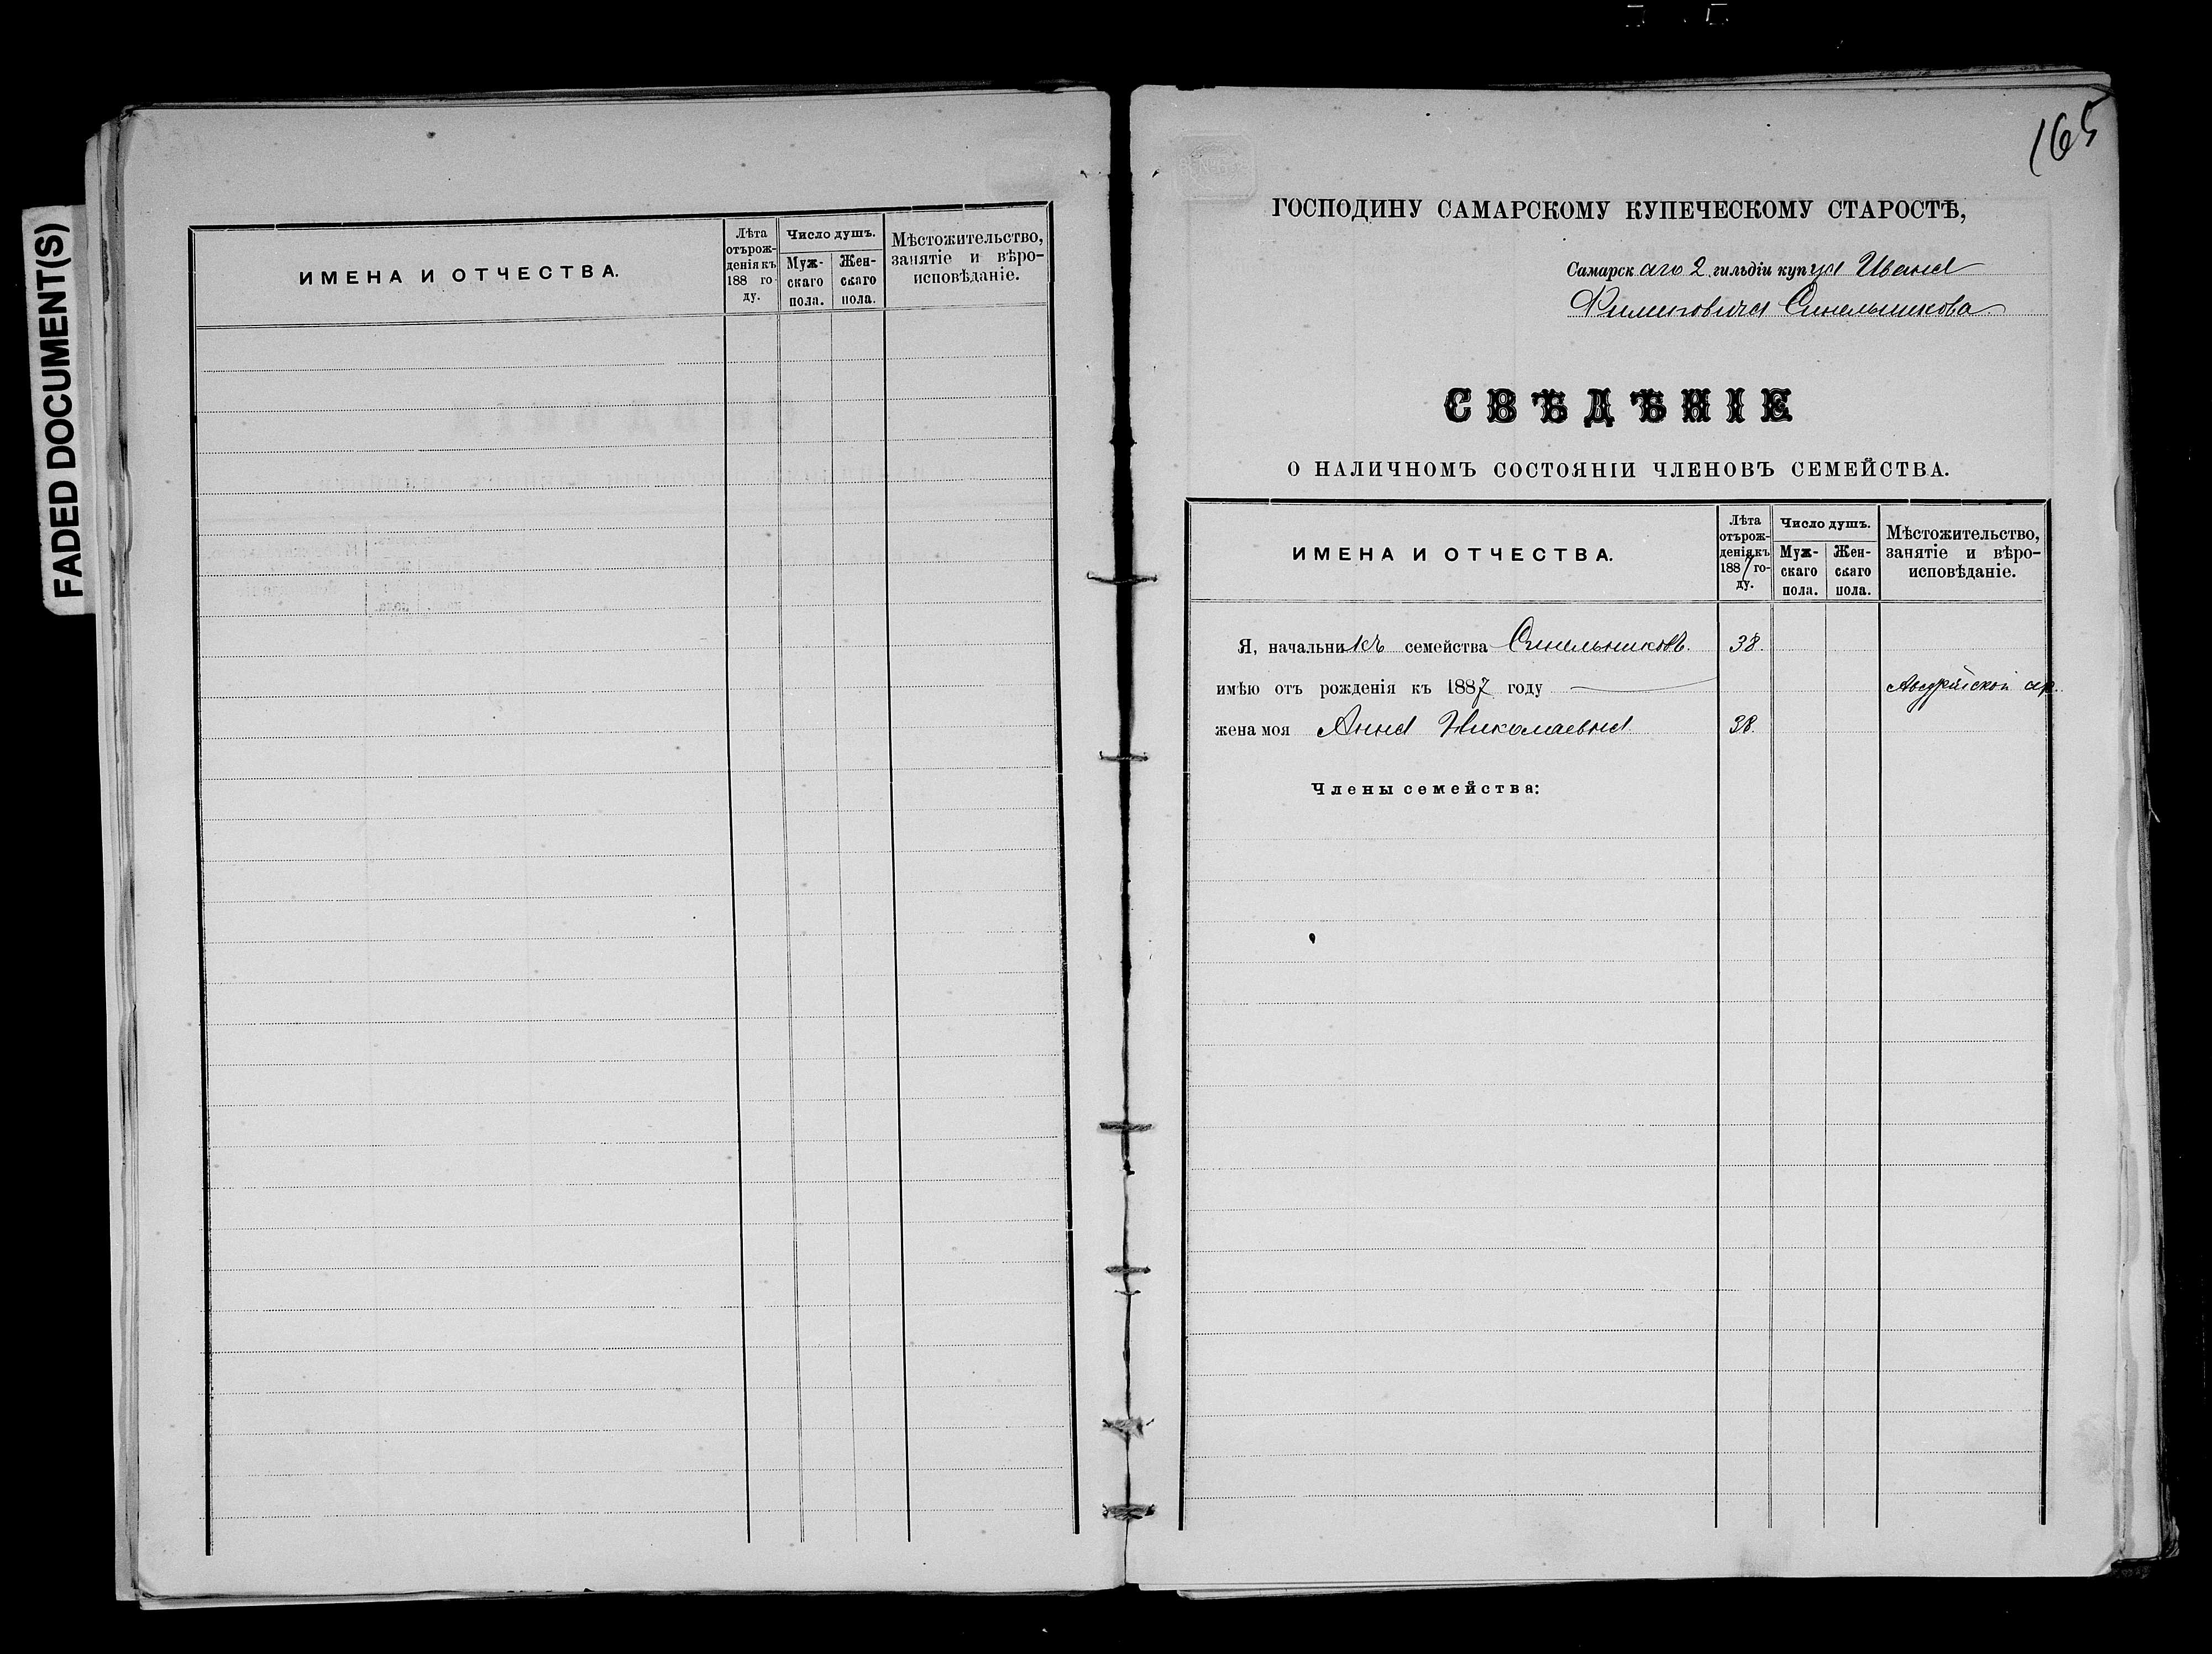 FADED DOCUMENT(S)
ИМЕНА И ОТЧЕСТВА.
Лѣта отърож-денія къ 188 го-ду.
Число душъ.
Муж-скаго пола.
Жен-скаго пола.
Мѣстожительство, занятіе и вѣро-исповѣданіе.
165
ГОСПОДИНУ САМАРСКОМУ КУПЕЧЕСКОМУ СТАРОСТѢ,
Самарскаго 2 гильдіи купца Ивана
Синельникова
СВѢДѢНІЕ
О НАЛИЧНОМЪ СОСТОЯНІИ ЧЛЕНОВЪ СЕМЕЙСТВА.
ИМЕНА И ОТЧЕСТВА.
Лѣта отърож-денія къ 1887 го-ду.
Число душъ.
Муж-скаго пола.
Жен-скаго пола.
Мѣстожительство, занятіе и вѣро-исповѣданіе.
Я, начальникъ семейства Синельниковъ. 38.
имѣю отъ рожденія къ 1887 году
жена моя Анна Николаевна. 38.
Члены семейства: